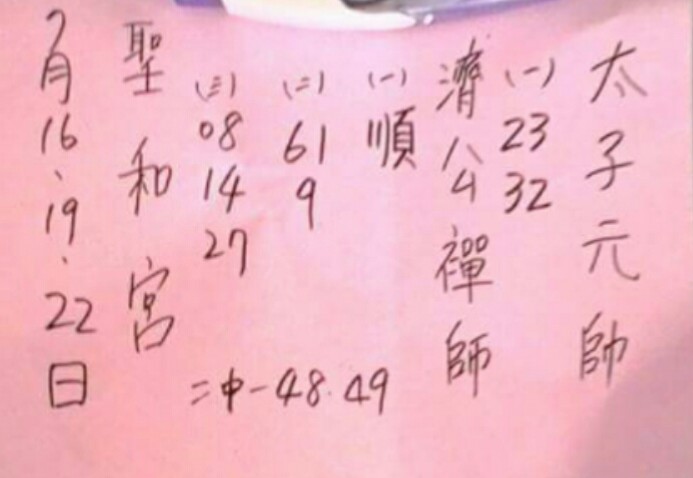 太子元帥
(一) 23 32
濟公禪師
(一) 順
(二) 61 9
(三) 08 14 27
二中一 48.49
聖和宮
7月16、19、22日